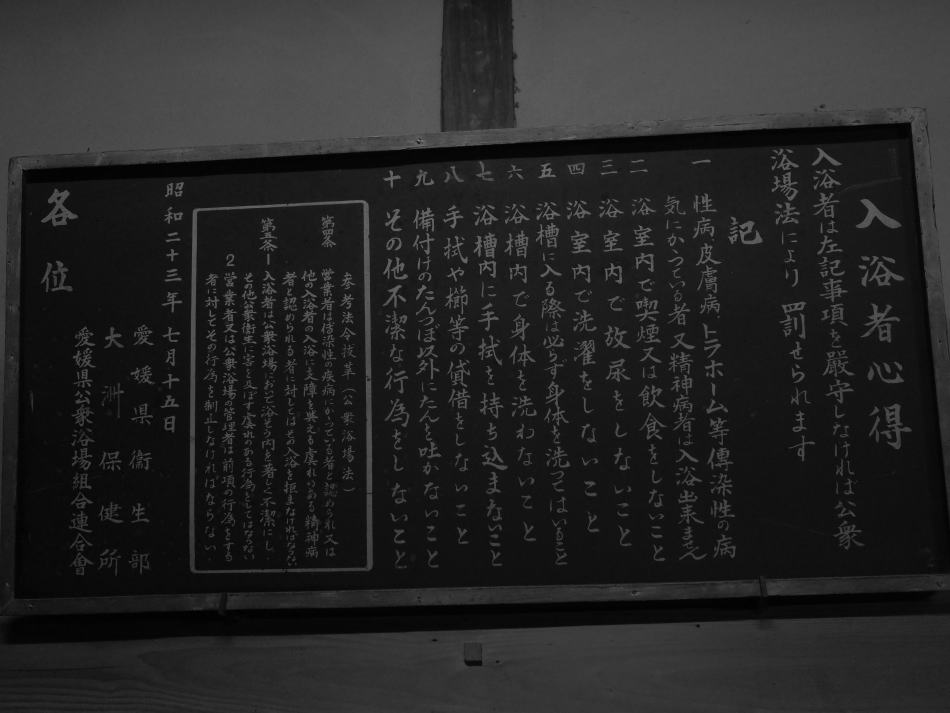 入浴者心得
入浴者は左記事項を嚴守しなければ公衆
浴場法により罰せられます
記
一 性病皮膚病トラホーム等傳染性の病
気にかつている者又精神病者は入浴出来ません
二 浴室内で喫煙又は飲食をしないこと
三 浴室内で放尿をしないこと
四 浴室内で洗濯をしないこと
五 浴槽に入る際は必らず身体を洗つてはいること
六 浴槽内で身体を洗わないこと
七 浴槽内に手拭を持ち込まないこと
八 手拭や櫛等の貸借をしないこと
九 備付けのたんつぼ以外にたんを吐かないこと
十 その他不潔な行為をしないこと
参考法令抜萃(公衆浴場法)
第四条 営業者は傳染性の疾病にかつている者と認められ又は
他の入浴者の入浴に支障を與える虞れのある精神病
者と認められる者に対しては その入浴を拒まなければならない
第五条 1 入浴者は公衆浴場において浴そう内を著しく不潔にし
その他公衆衛生に害を及ぼす虞れのある行為をしてはならない
2 営業者又は公衆浴場の管理者は前項の行為をする
者に対してその行為を制止しなければならない
昭和二十三年七月十五日
愛媛県衛生部
大洲保健所
愛媛県公衆浴場組合連合會
各位